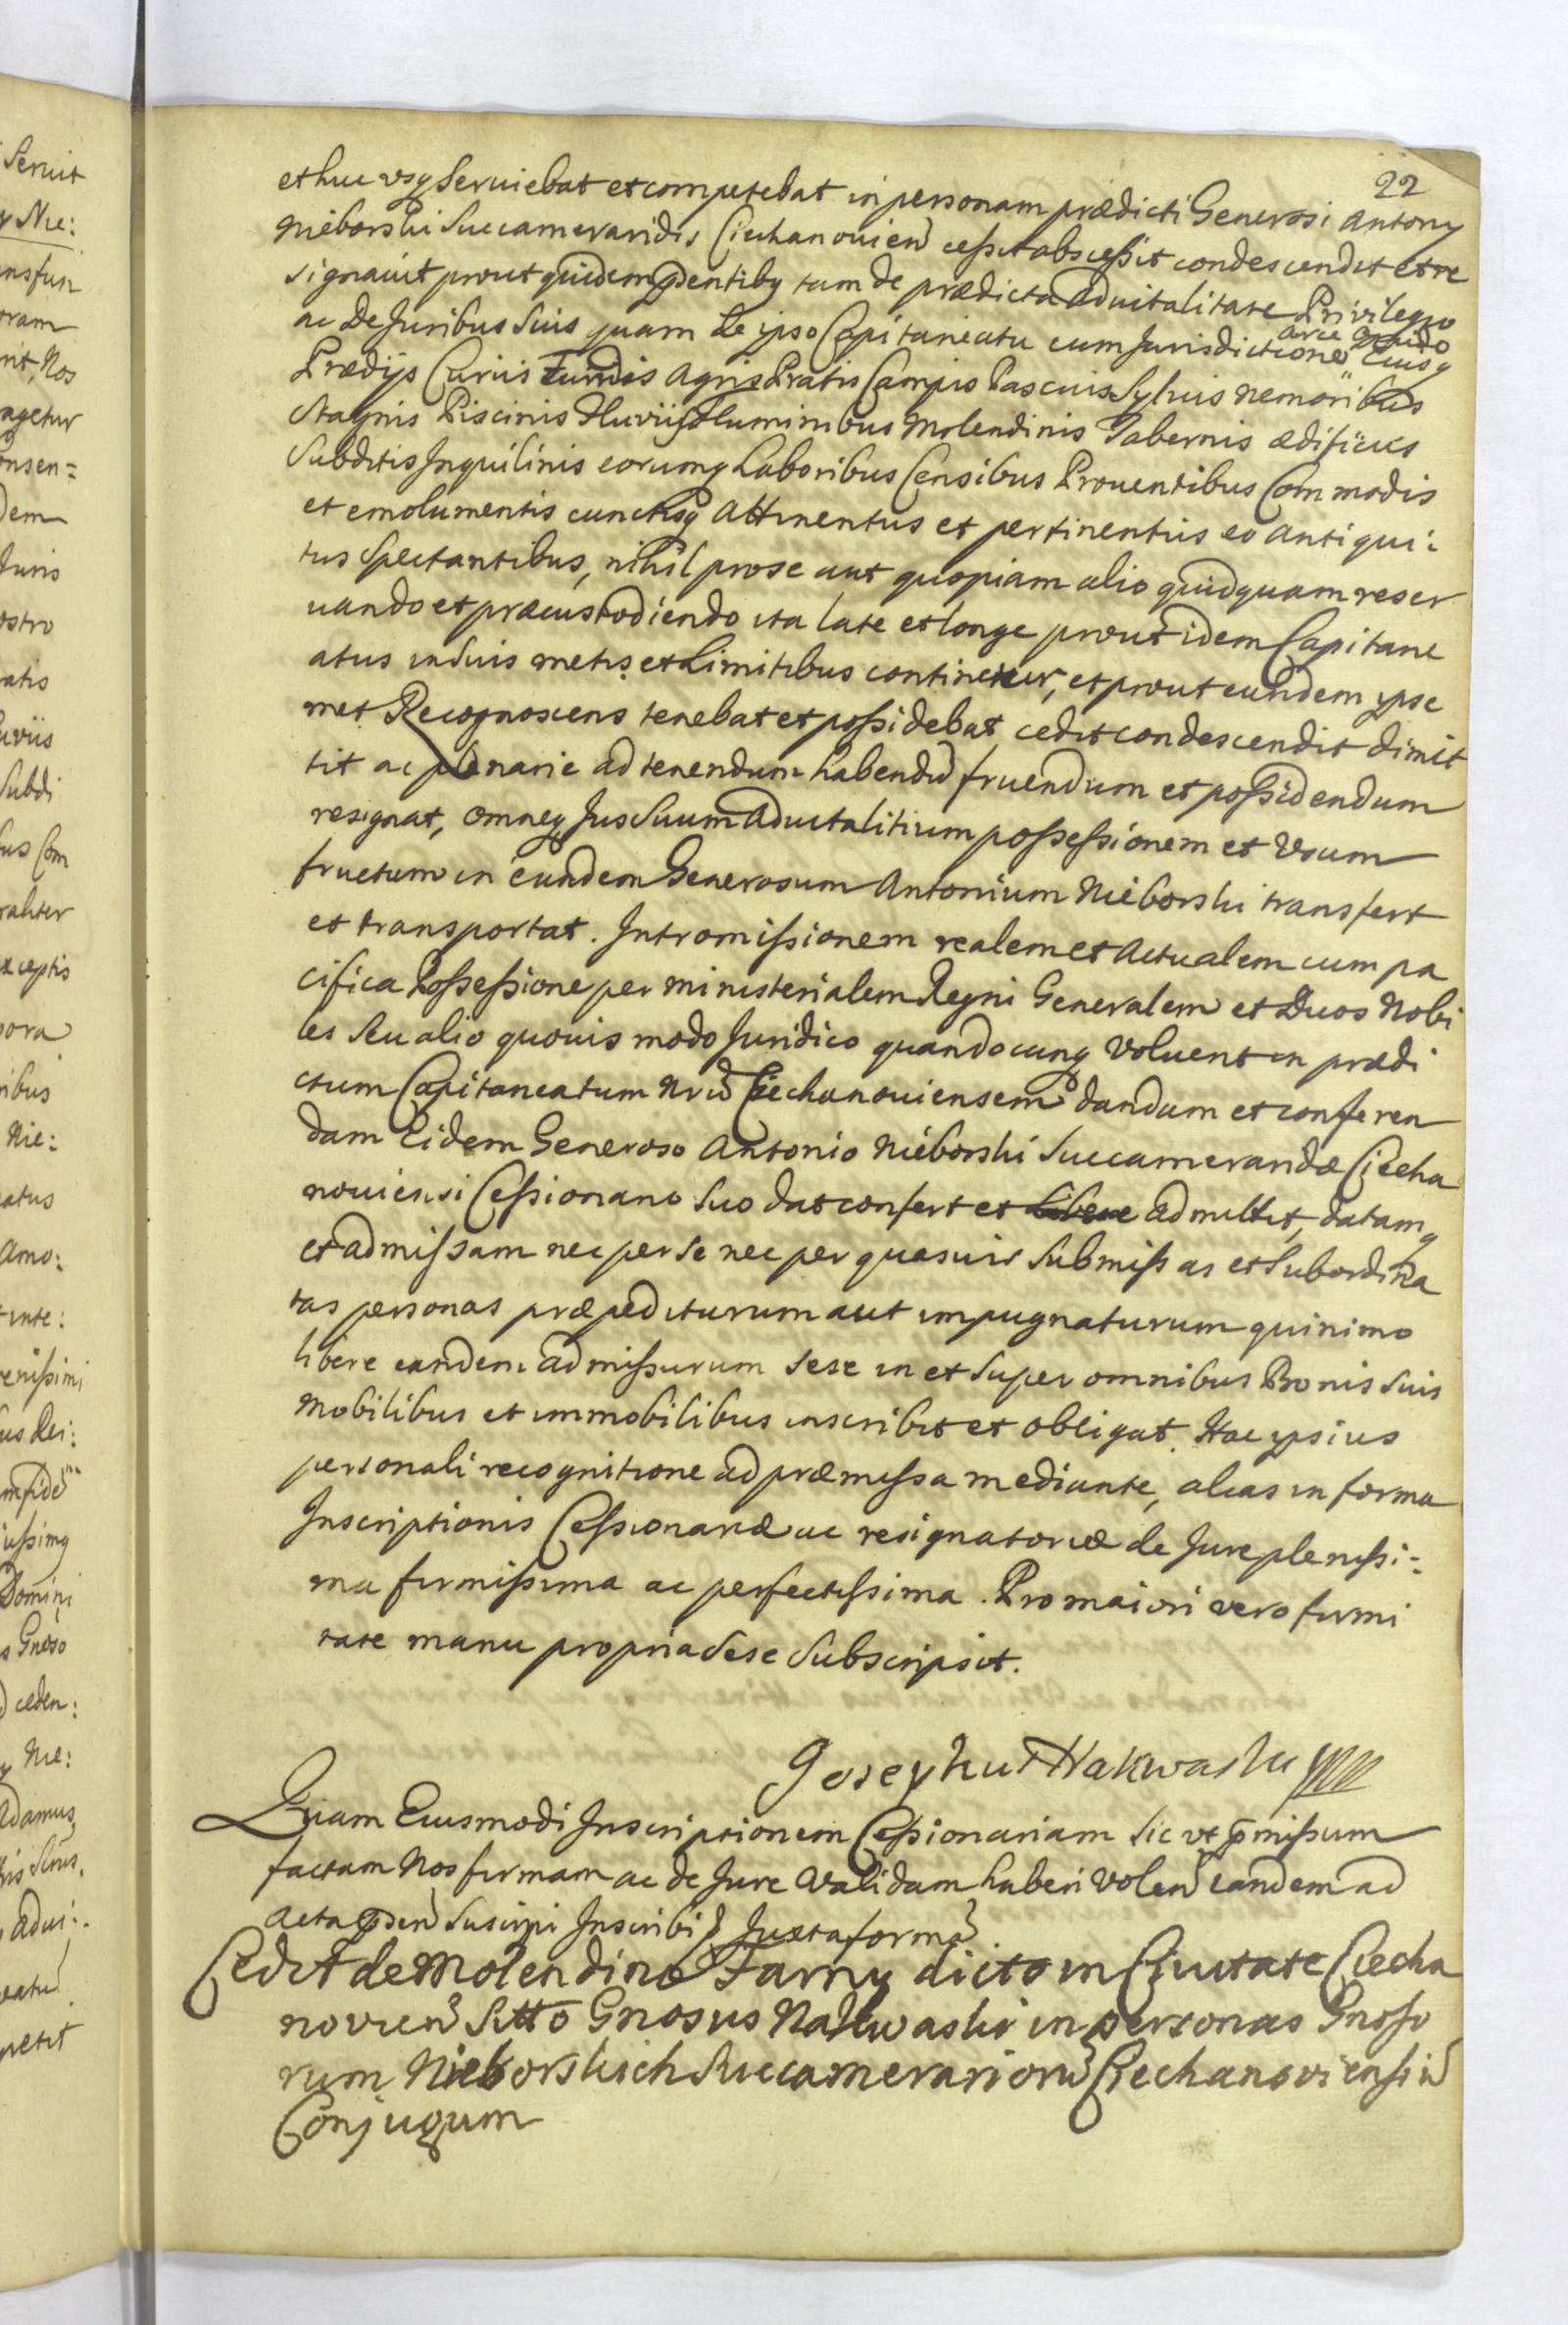 22
et huc usq Seruiebat et competebat in personam prædicti Generosi Antony
Nieborski Succameraridis Ciechanouien cessit abscessit condescendit et re
signauit prout quidem pntibq tam de prædicta Aduitalitate Privilegio
ac de Juribus Suis quam de ipso Capitaneatu cum Jurisdictione arce oppido Eiusq
Prædijs Curiis Fundis Agris Pratis Campis Pascuis Syluis Nemoribus
Stagnis Piscinis Fluviis Fluminibus Molendinis Tabernis ædificiis
Subditis Inquilinis eorumq Laboribus Censibus Prouentibus Commodis
et emolumentis cunctisq Attinentiis et pertinentiis eo Antiqui:
tus Spectantibus, nihil pro se aut quopiam alio quidquam reser
uando et præcustodiendo ita late et longe prout idem Capitane
atus in Suis metis et Limitibus continetur, et prout eundem ipse
met Recognoscens tenebat et possidebat cedit condescendit dimit
tit ac plenarie ad tenendum habendu fruendum et possidendum
resignat, Omneq Jus Suum Aduitalitium possessionem et Usum
fructum in eundem Generosum Antonium Nieborski transfert
et transportat. Intromissionem realem et Actualem cum pa
cifica Possessione per ministerialem Regni Generalem et Duos Nobi
les seu alio quouis modo Juridico quandocunq Voluent in prædi
ctum Capitaneatum Nrũ Ciechanouiensem dandam et conferen
dam Eidem Generoso Antonio Nieborski Succamerandæ Ciecha
nouiensi Cessionario Suo dat confert et libere admittit, datamq
et admissam nec per se nec per quasuis Submissas et Subordina
tas personas præpediturum aut impugnaturum quinimo
libere eandem admissurum sese in et super omnibus Bonis Suis
Mobilibus et immobilibus inscribit et obligat. Hac ipsius
personali recognitione ad præmissa mediante, alias in forma
Inscriptionis Cessionariæ ac resignatoriæ de Jure plenissi:
ma firmissima ac perfectissima. Pro maiori vero firmi
tate manu propria Sese Subscripsit.
Josephus Nakwaski
Quam Eiusmodi Inscriptionem Cessionariam Sic ut pmissum
factam Nos firmam ac de Jure Validam haberi Volen eandem ad
Acta pñsen Suscipi Inscribi Juxta formã
Cedit de Molendino Farny dicto in Ciuitate Ciecha
novien Sitto Gnosus Nakwaski in personas Gnoso
rum Nieborskich Succamerariorũ Ciechanoviensiũ
Conjugum